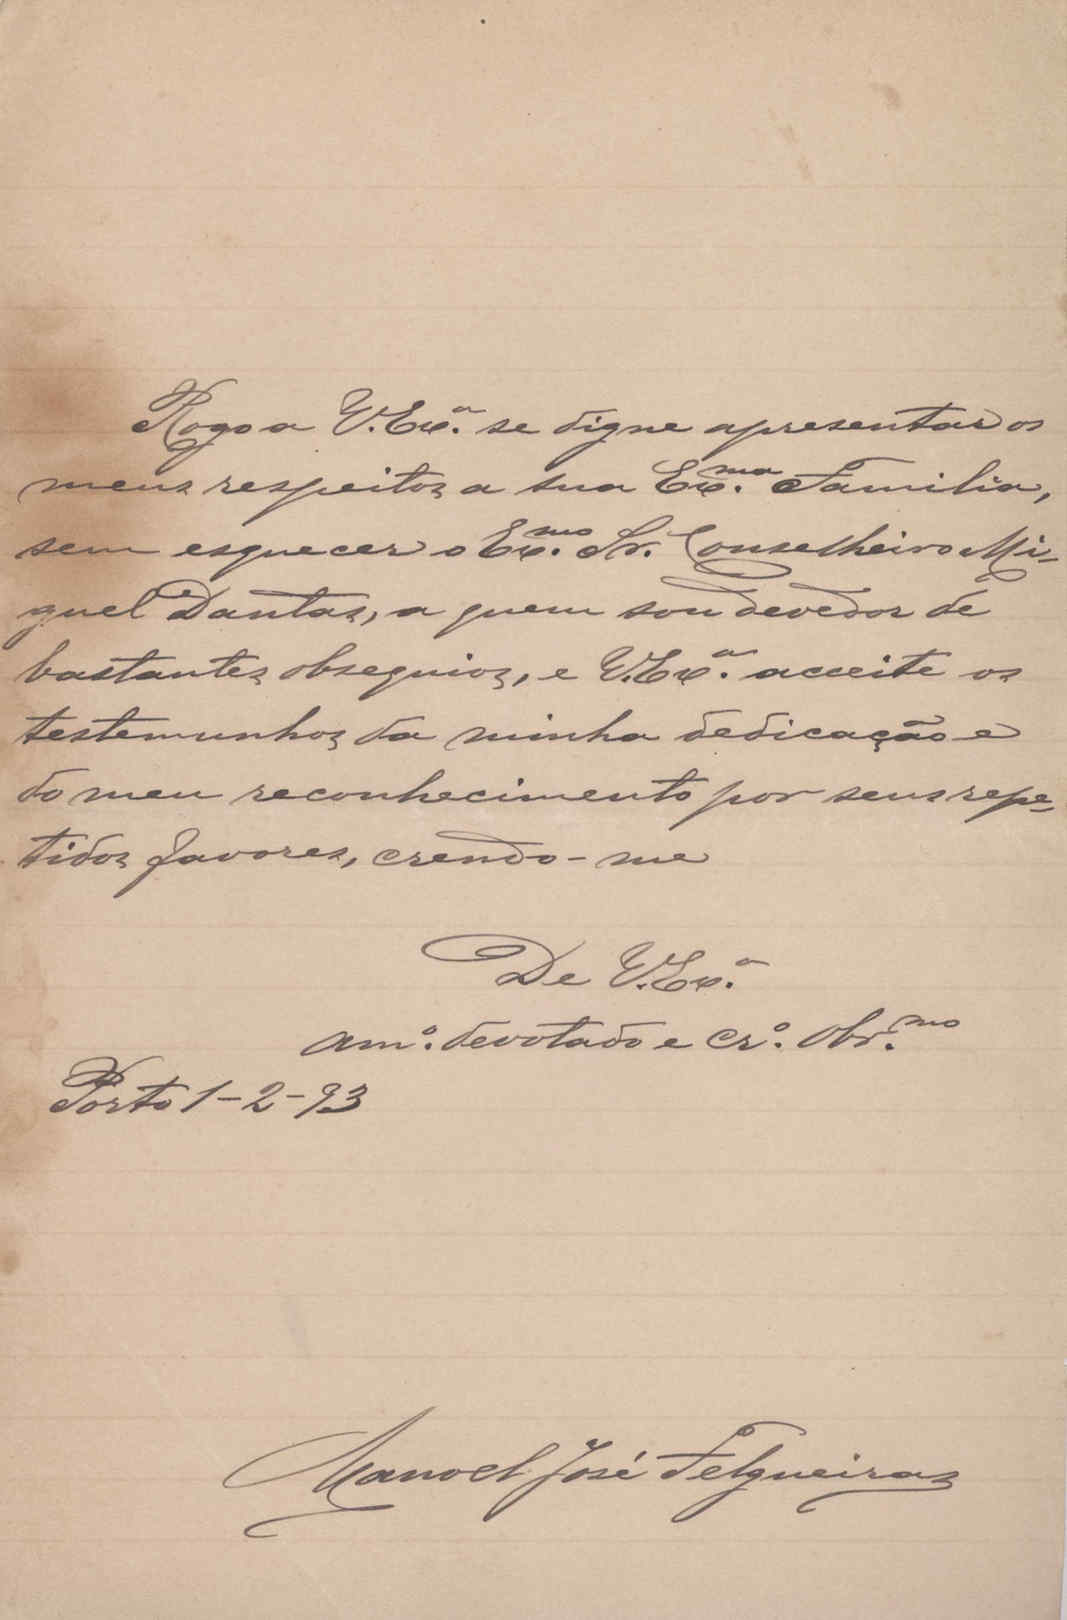 Rogo a V. Ex.ª se digne apresentar os
meus respeitos a sua Ex.ma Familia,
sem esquecer o Ex.mo Sr. Conselheiro Mi-
guel Dantas, a quem sou devedor de
bastantes obsequios, e V. Ex.ª acceite os
testemunhos da minha dedicação e
do meu reconhecimento por seus repe-
tidos favores, crendo-me
De V. Ex.ª
am.º devotado e cr.º obr.mo
Porto 1-2-93
Manoel José Felgueiras